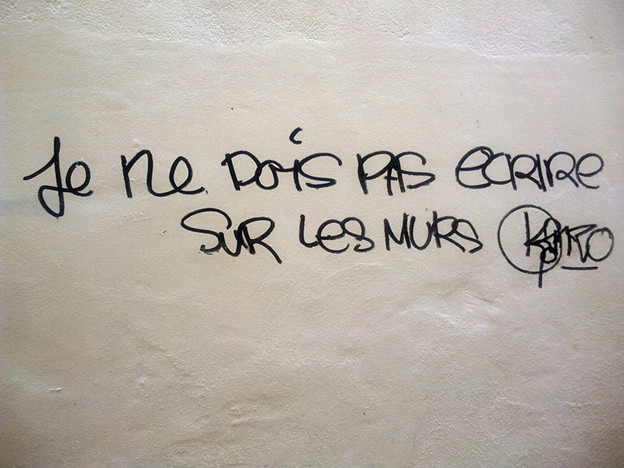 Je ne DOiS PAS ECRIRE
SUR LES MURS